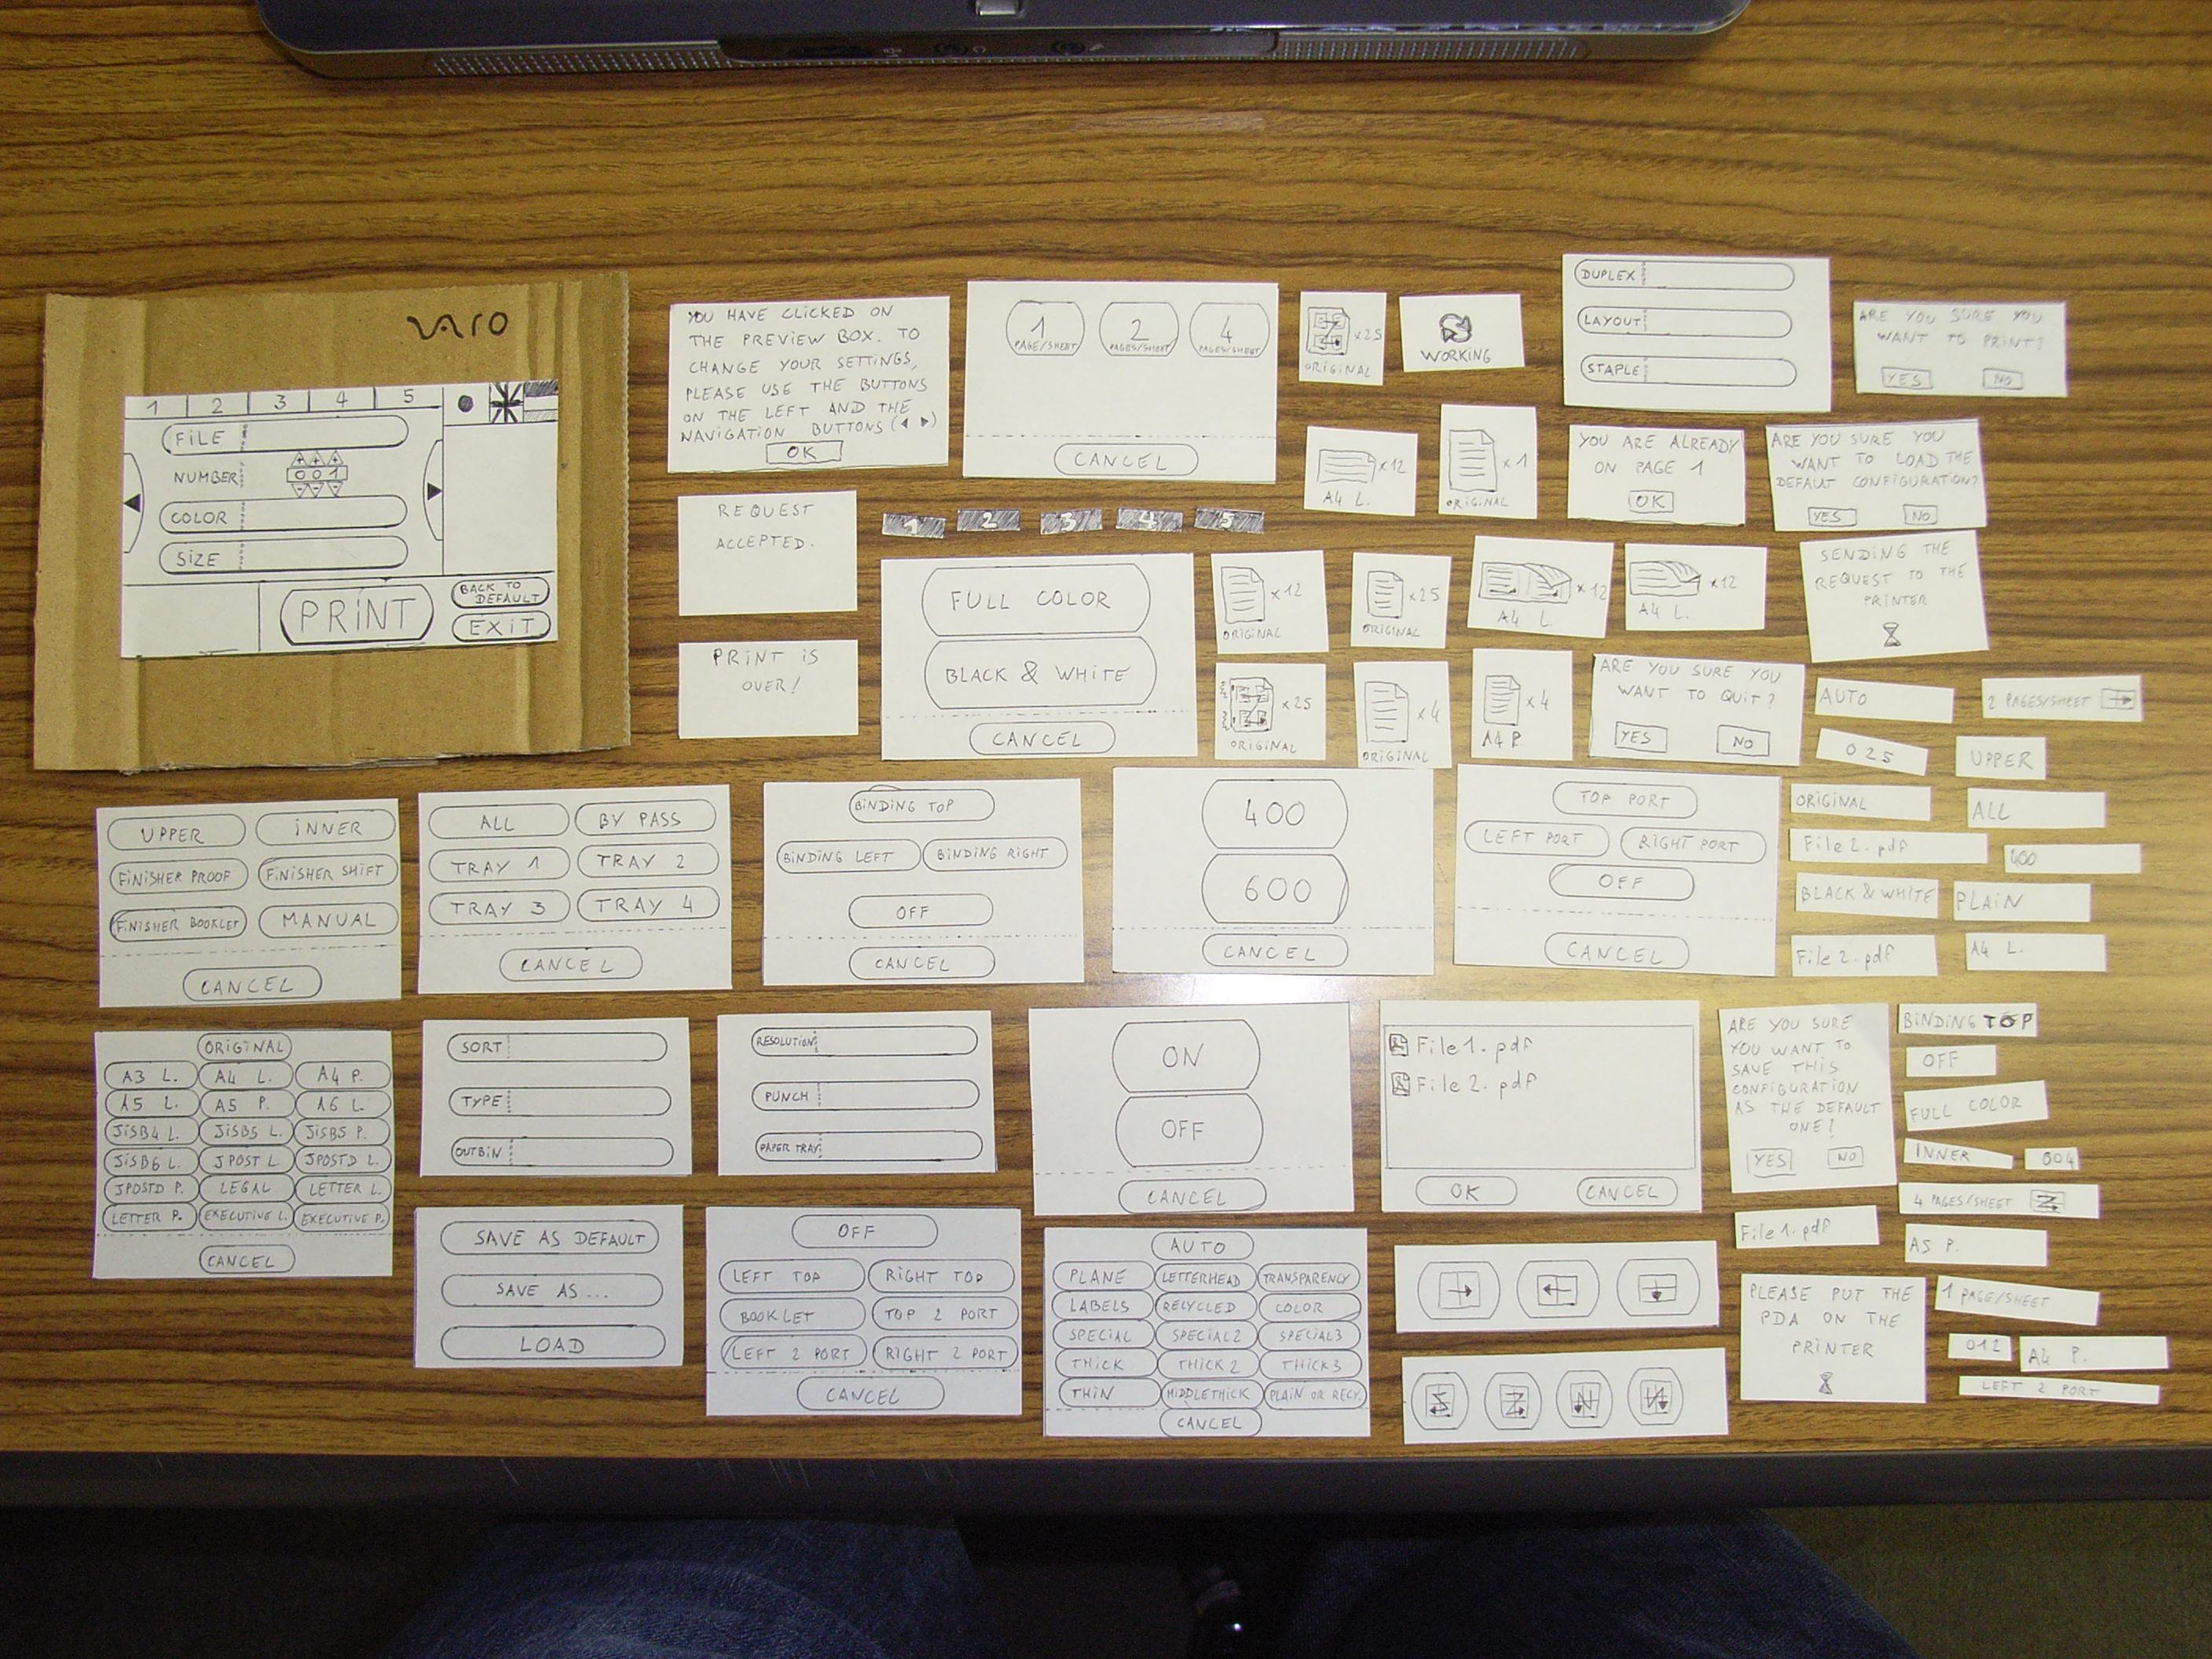 VAIO
1 2 3 4 5
FILE
NUMBER 001
COLOR
SIZE
PRINT
BACK TO
DEFAULT
EXIT
YOU HAVE CLICKED ON
THE PREVIEW BOX. TO
CHANGE YOUR SETTINGS,
PLEASE USE THE BUTTONS
ON THE LEFT AND THE
NAVIGATION BUTTONS (◀ ▶)
OK
1 2 4
PAGE/SHEET PAGES/SHEET PAGES/SHEET
CANCEL
×25
ORIGINAL
WORKING
DUPLEX
LAYOUT
STAPLE
ARE YOU SURE YOU
WANT TO PRINT?
YES NO
×12
A4 L.
×1
ORIGINAL
YOU ARE ALREADY
ON PAGE 1
OK
ARE YOU SURE YOU
WANT TO LOAD THE
DEFAULT CONFIGURATION?
YES NO
REQUEST
ACCEPTED.
1 2 3 4 5
PRINT IS
OVER!
FULL COLOR
BLACK & WHITE
CANCEL
×12
ORIGINAL
×25
ORIGINAL
×12
A4 L.
×12
A4 L.
SENDING THE
REQUEST TO THE
PRINTER
×25
ORIGINAL
×4
ORIGINAL
×4
A4 P.
ARE YOU SURE YOU
WANT TO QUIT?
YES NO
AUTO
2 PAGES/SHEET
025
UPPER
ORIGINAL
ALL
File 2. pdf
400
BLACK & WHITE
PLAIN
File 2. pdf
A4 L.
UPPER INNER
FINISHER PROOF FINISHER SHIFT
FINISHER BOOKLET MANUAL
CANCEL
ALL BY PASS
TRAY 1 TRAY 2
TRAY 3 TRAY 4
CANCEL
BINDING TOP
BINDING LEFT BINDING RIGHT
OFF
CANCEL
400
600
CANCEL
TOP PORT
LEFT PORT RIGHT PORT
OFF
CANCEL
ORIGINAL
A3 L. A4 L. A4 P.
A5 L. A5 P. A6 L.
JISB4 L. JISB5 L. JISB5 P.
JISB6 L. JPOST L. JPOSTD L.
JPOSTD P. LEGAL LETTER L.
LETTER P. EXECUTIVE L. EXECUTIVE P.
CANCEL
SORT
TYPE
OUTBIN
RESOLUTION
PUNCH
PAPER TRAY
ON
OFF
CANCEL
File 1. pdf
File 2. pdf
OK CANCEL
ARE YOU SURE
YOU WANT TO
SAVE THIS
CONFIGURATION
AS THE DEFAULT
ONE?
YES NO
BINDING TOP
OFF
FULL COLOR
INNER
004
4 PAGES/SHEET
File 1. pdf
A5 P.
SAVE AS DEFAULT
SAVE AS ...
LOAD
OFF
LEFT TOP RIGHT TOP
BOOKLET TOP 2 PORT
LEFT 2 PORT RIGHT 2 PORT
CANCEL
AUTO
PLANE LETTERHEAD TRANSPARENCY
LABELS RECYCLED COLOR
SPECIAL SPECIAL2 SPECIAL3
THICK THICK 2 THICK3
THIN MIDDLETHICK PLAIN OR RECY.
CANCEL
PLEASE PUT THE
PDA ON THE
PRINTER
1 PAGE/SHEET
012
A4 P.
LEFT 2 PORT